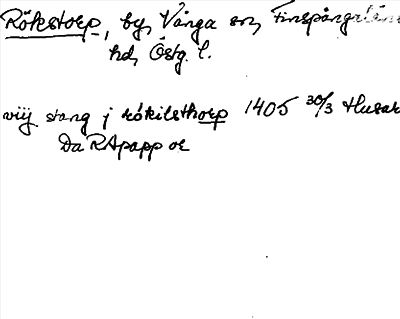 Rökstorp, by, Vånga sn, Finspångaläns
hd, Östg. l.
viij stang j rökilsthorp 1405 30/3 Husar
Da RApapp or